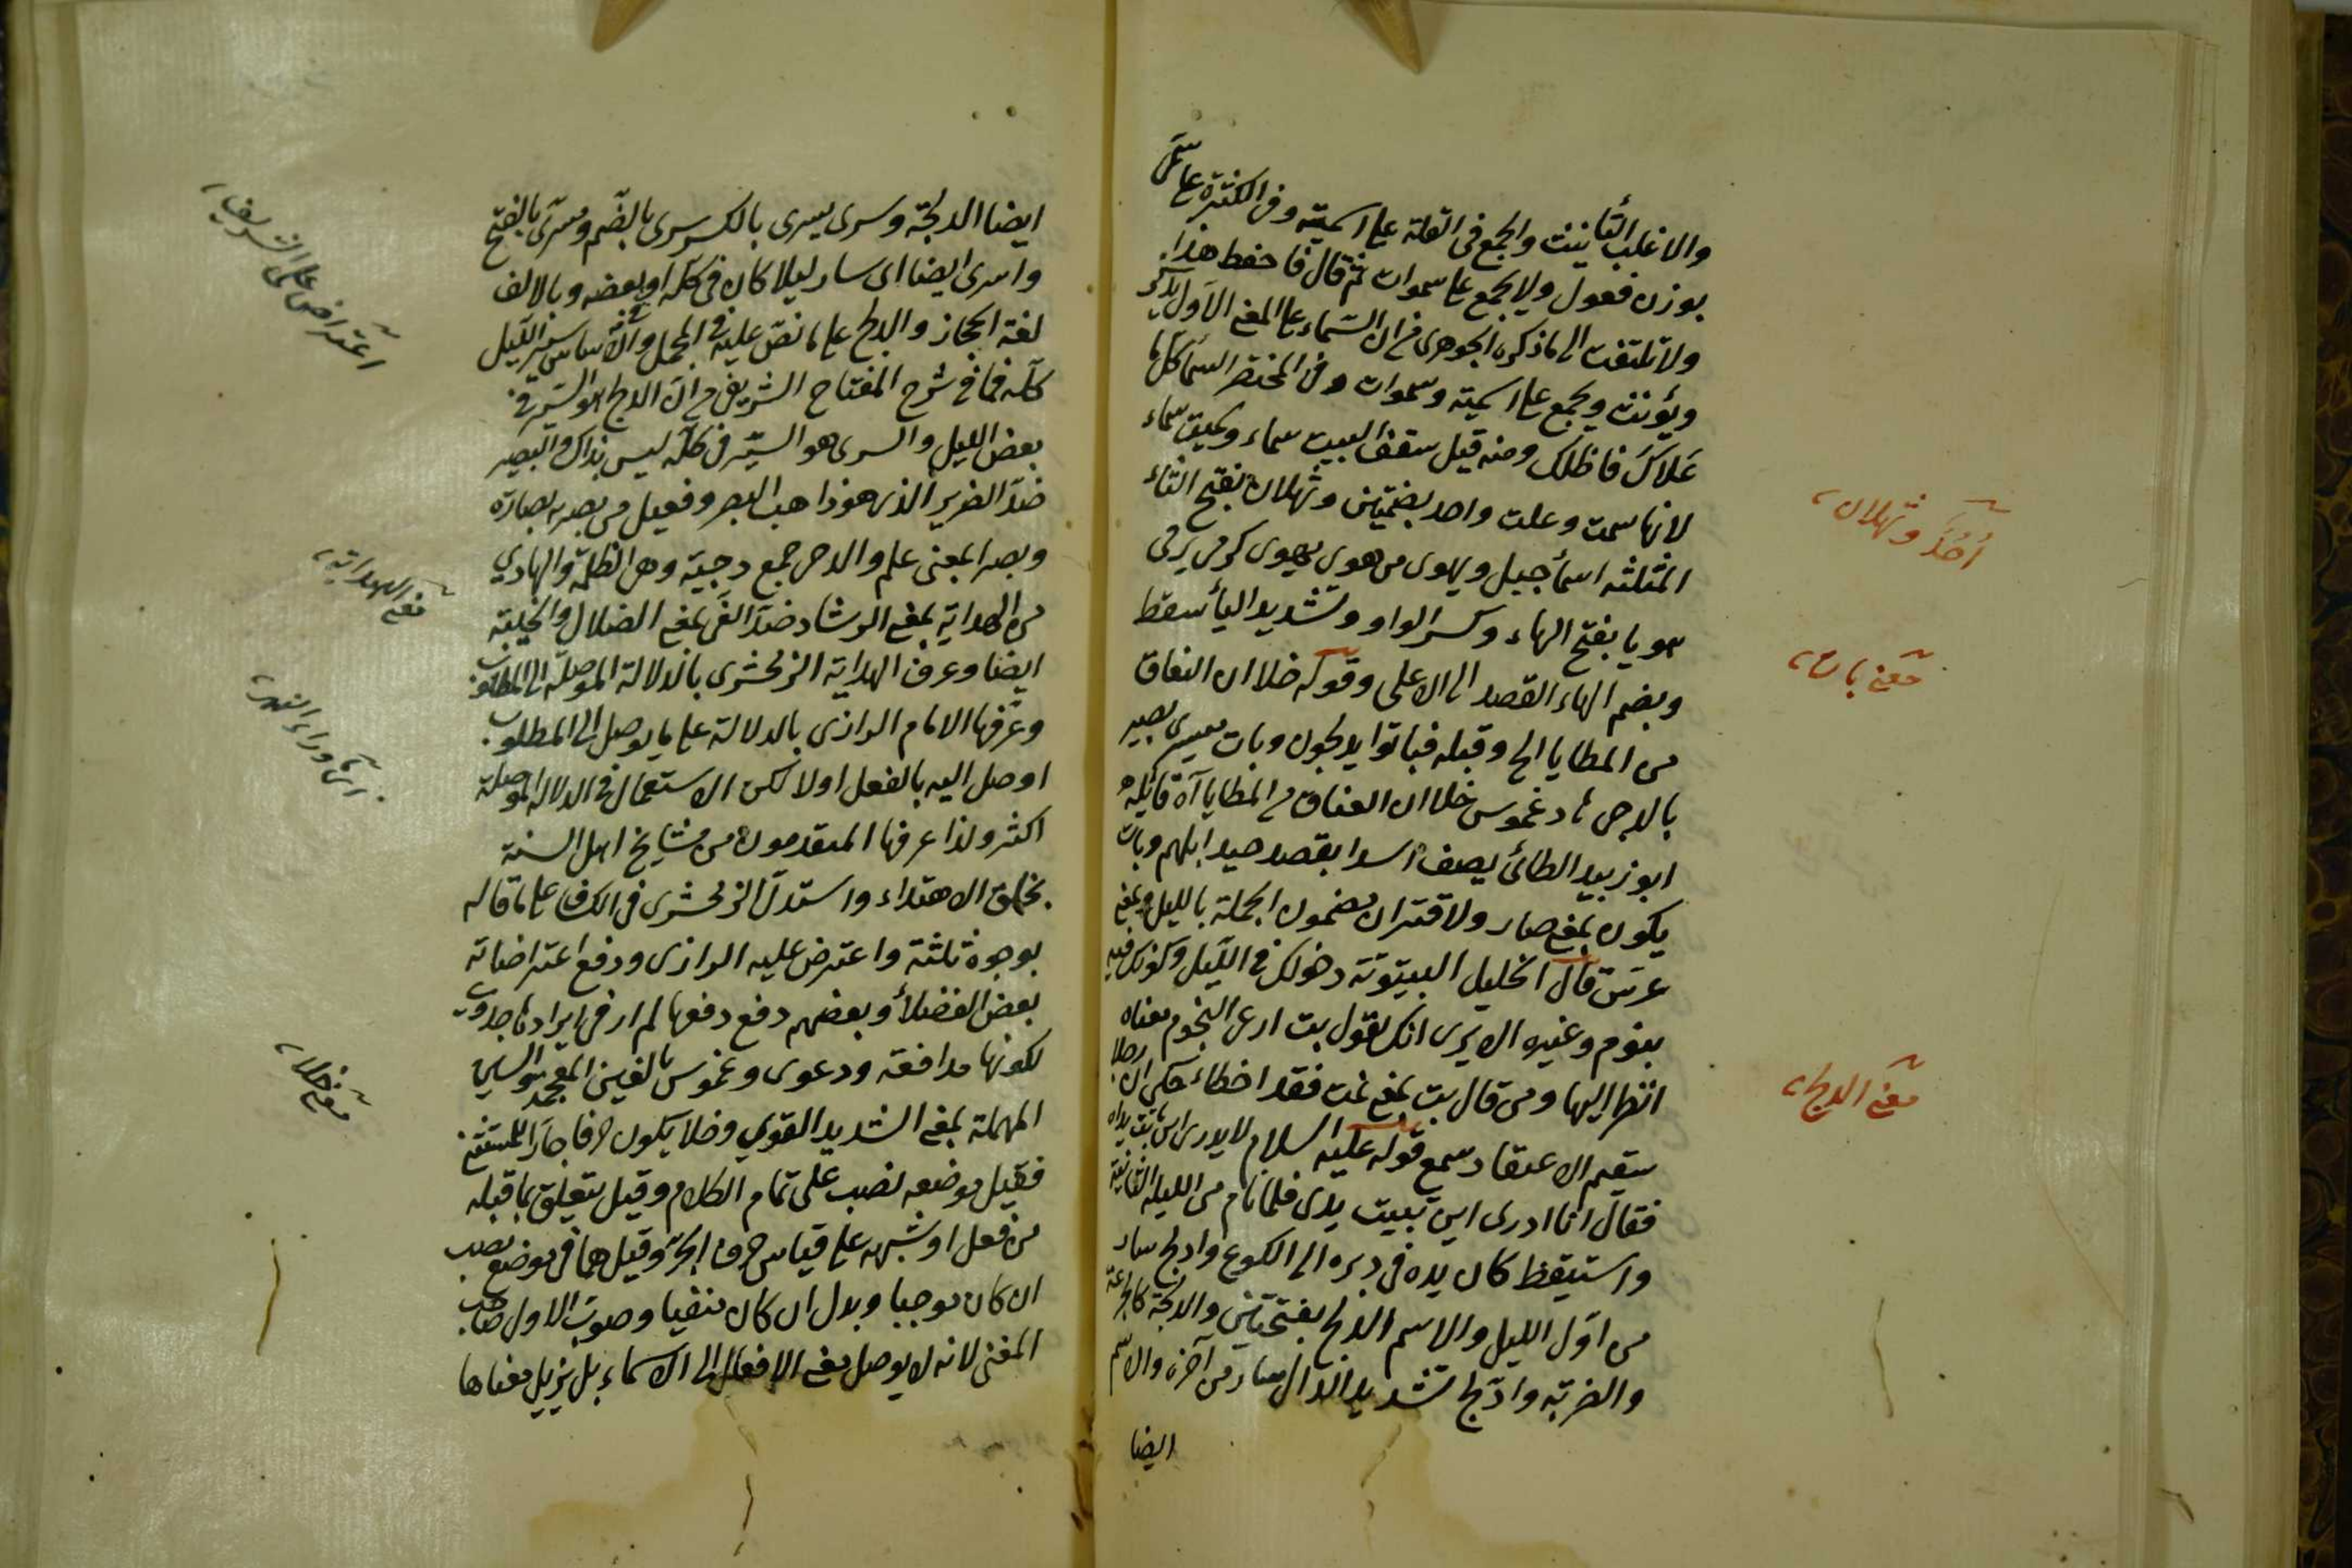 والاغلب التأنيث والجمع فى القلة على اسمية وفى الكثرة على سمىّ
بوزن فعول ولا يجمع على سموات ثم قال فاحفظ هذا
ولا تلتفت الى ما ذكره الجوهرى من ان السّماء على المعنى الاول يذكر
ويؤنث ويجمع على اسمية وسموات وفى المختصر السمأ كل ما
عَلاكَ فاظلك ومنه قيل سقف البيت سماء
لانها سمت وعلت واحد بضمتين وثهلان بفتح الثاء
المثلثه اسمأ جبيل ويهوى من هوى يهوى كرمى يرمى
هويا بفتح الهاء وكسر الواو وتشديد اليأ سقط
وبضم الهاء القصد الى الاعلى وقوله خلا ان العتاق
من المطايا الخ وقبله فباتوا يدلجون وبات يسرى بصير
بالدجى هاد غموس خلا ان العتاق من المطايا آه قائله
ابو زبيد الطائى يصف اسدا يقصد صيد ابلهم وبات
يكون بمعنى صار ولاقتران مضمون الجملة بالليل وبمعنى
عرّس قال الخليل البيتوتة دخولك فى الليل وكونك فيه
بنوم وغيره الا يرى انك تقول بت ارعى النجوم معناه
انظر اليها ومن قال بت بمعنى نمت فقد اخطاء حكى ان رجلا
سقيم الاعتقاد سمع قوله عليه السلام لا يدرى اين باتت يداه
فقال انا ادرى اين تبيت يدى فلما نام من الليلة الثانية
واستيقظ كان يده فى دبره الى الكوع وادلج سار
من اوّل الليل والاسم الدلج بفتحتين والدلجة كالجرعة
والضربة وادّلج بتشديد الدال سار من آخره والاسم
ايضا
اُحُدٌ وثهلان
معنى بات
معنى الدلج
ايضا الدلجة وسرى يسرى بالكسر سرى بالضم ومسرى بالفتح
واسرى ايضا اى سار ليلا كان فى كله او بعضه وبالالف
لغة الحجاز والدلج على ما نصّ عليه فى المجمل والاساس سير الليل
كله فما فى شرح المفتاح الشريفى من انّ الدلج هو السّير فى
بعض الليل والسرى هو السّير فى كله ليس بذاك والبصير
ضدّ الضرير الذى هو ذاهب البصر وفعيل من بصر به بصارة
وبصرا بمعنى علم والدجى جمع دجية وهى الظلمة والهادي
من الهداية بمعنى الرشاد ضدّ الغى بمعنى الضلال والخيبة
ايضا وعرف الهداية الزمخشرى بالدلالة الموصلة الى المطلوب
وعرّفها الامام الرازى بالدلالة على ما يوصل الى المطلوب
اوصل اليه بالفعل اولا لكن الاستعمال فى الدلالة الموصلة
اكثر ولذا عرفها المتقدمون من مشايخ اهل السنة
بخلق الاهتداء واستدلّ الزمخشرى فى الكشاف على ما قاله
بوجوه ثلثة واعترض عليه الرازى ودفع اعتراضاته
بعض الفضلأ وبعضهم دفع دفعها لم ار فى ايرادها جدوى
لكونها مدافعة ودعوى وغموس بالغين المعجمة والسين
المهملة بمعنى الشديد القوي وخلا يكون حرفا جارا للمستثنى
فقيل موضعه نصب على تمام الكلام وقيل يتعلق بما قبله
من فعل او شبهه على قياس حرف الجرّ وقيل هما فى موضع نصب
ان كان موجبا وبدل ان كان منفيا وصوّب الاول صاحب
المغنى لانه لا يوصل معنى الافعال الى الاسماء بل يزيل معناها
اعتراض على الشريف
معنى الهداية
معنى خلا